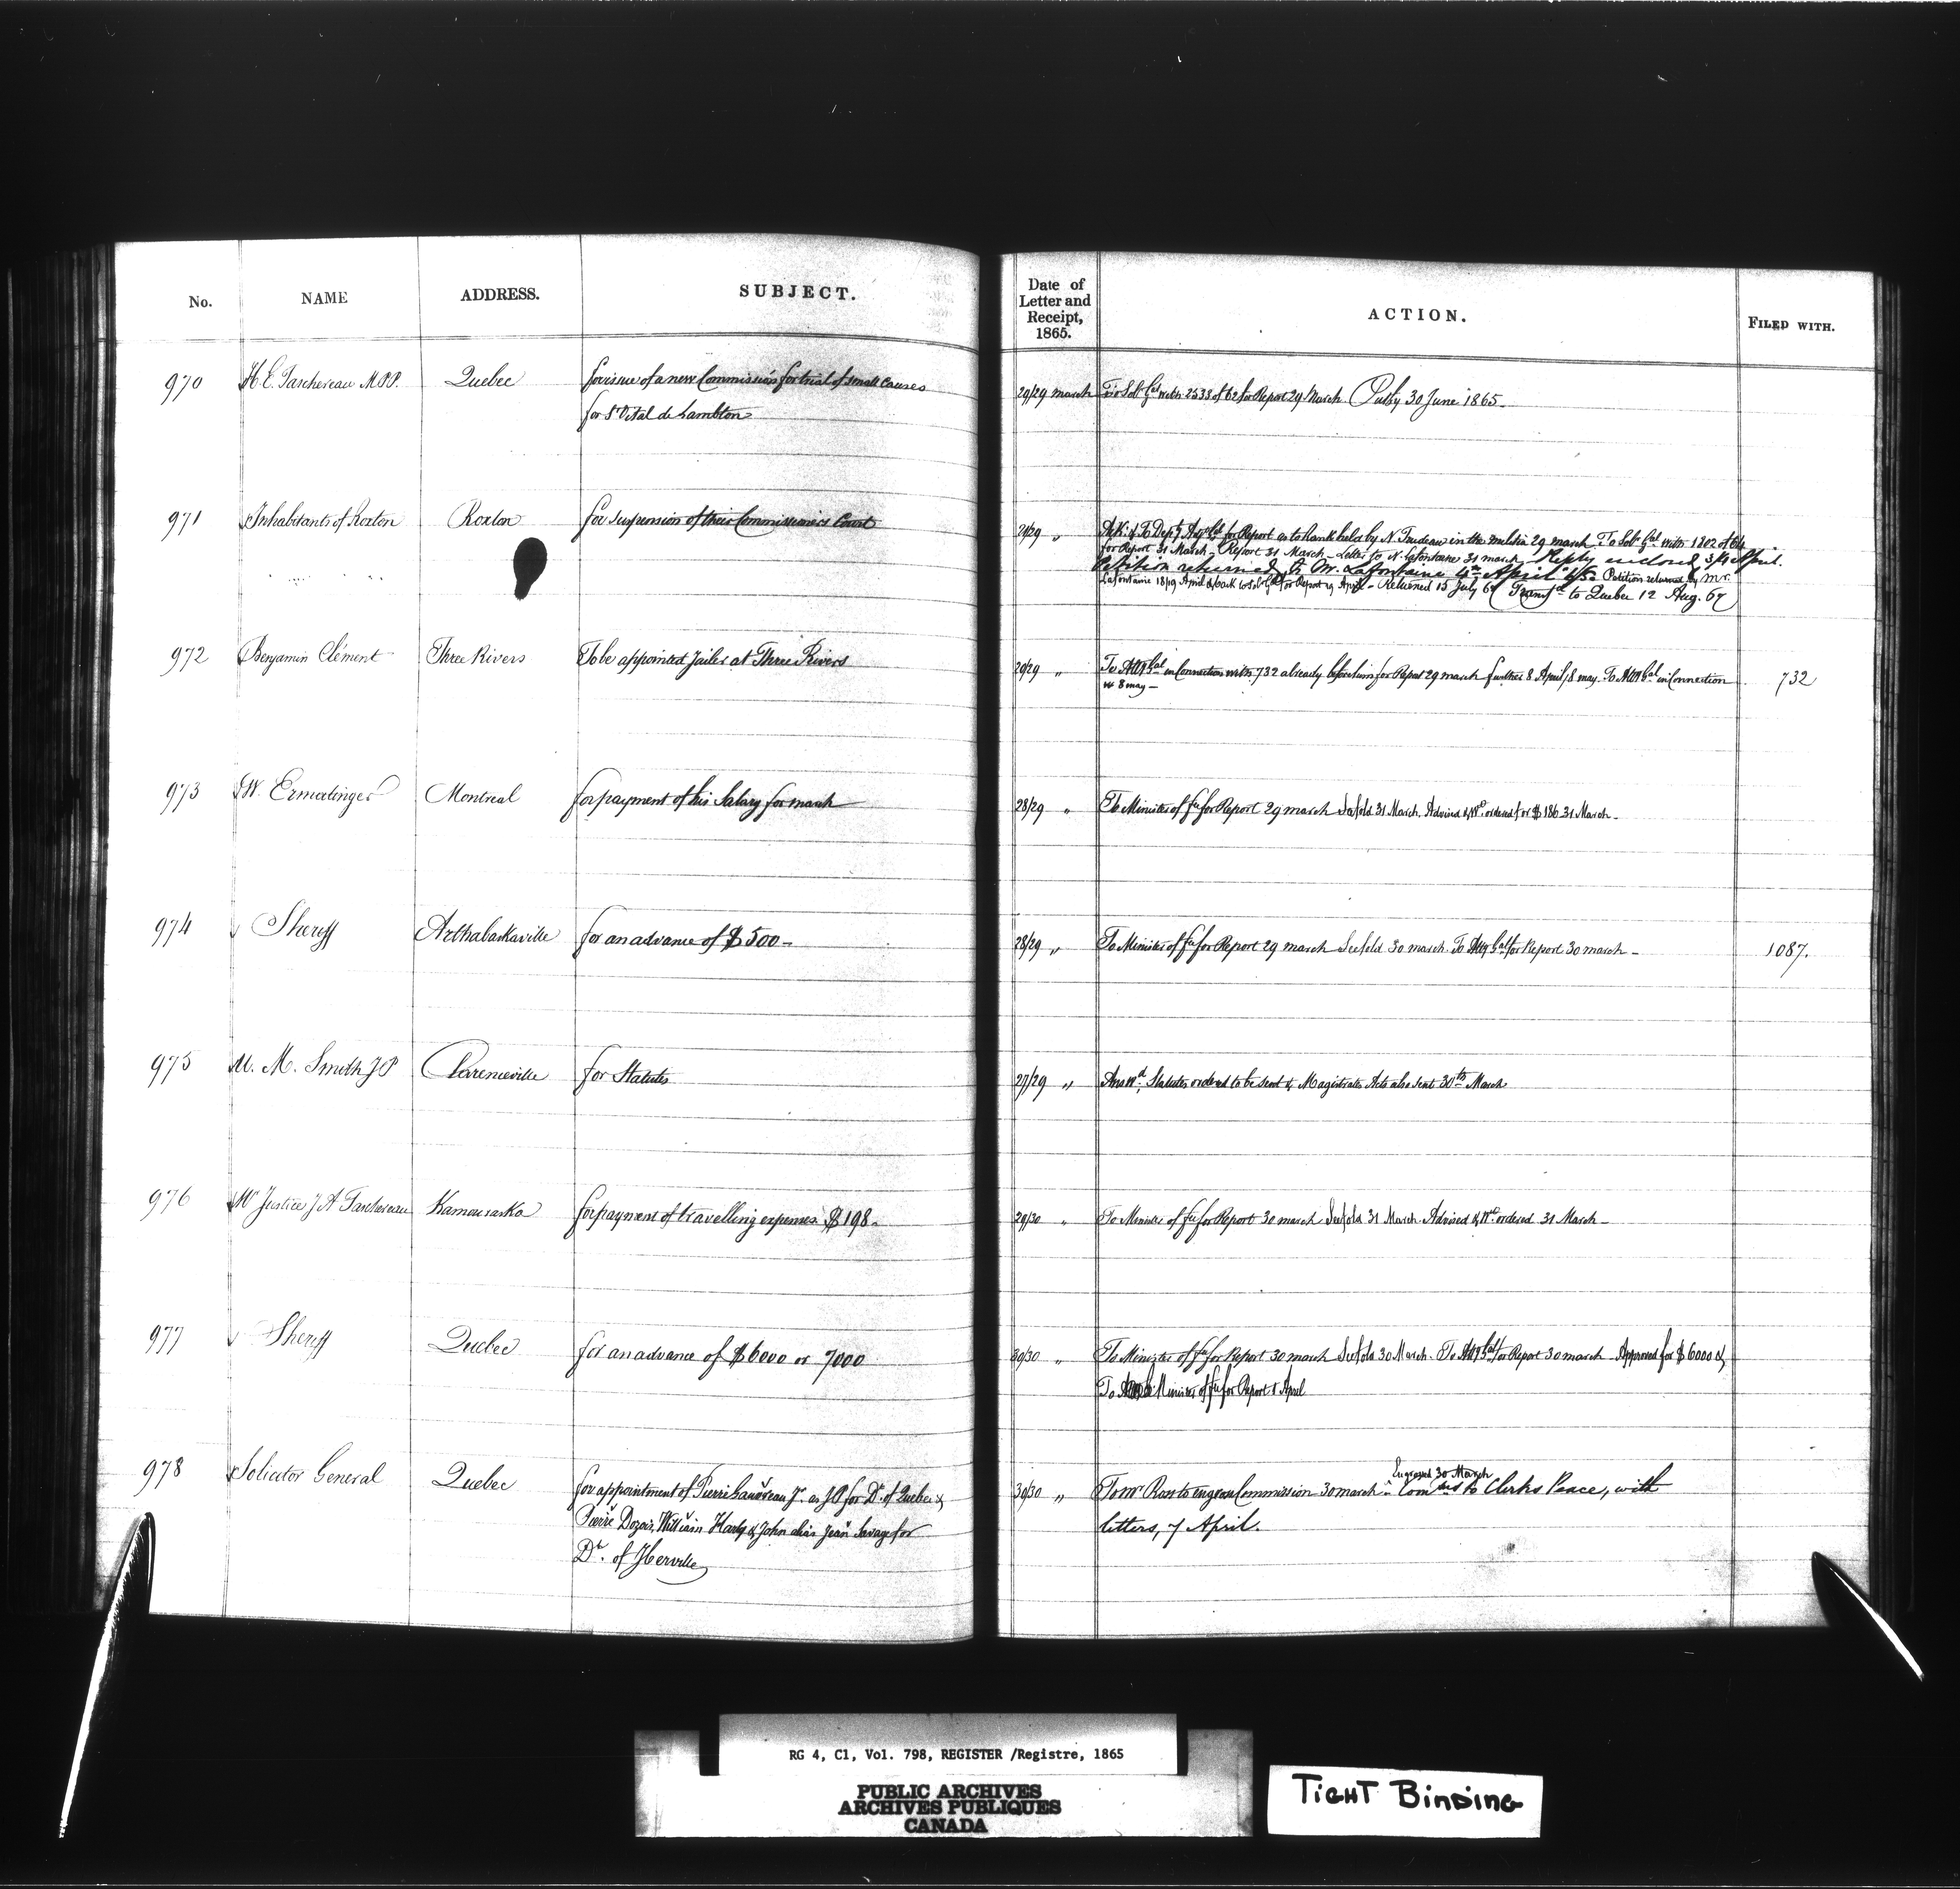 No. NAME ADDRESS. SUBJECT. Date of Letter and Receipt, 1865. ACTION. FILED WITH.
970 H. E. Taschereau M.P.P. Quebec for issue of a new Commission for trial of small Causes
for St Vital de Lambton
29/29 march To Sol Gal with 2538 of 62 for Report 29 March. 30 June 1865
971 Inhabitants of Roxton Roxton for suspension of their Commissioners Court
28/29 " Ack. & To Depy Adjt Gal for Report as to Rank held by N. Trudeau in the militia 29 march. To Sol. Gal with 1302 of
for Report 31 March - Report 31 March - Letter to N. Lafontaine 31 march Reply enclosed April.
Petition returned to Mr. Lafontaine 4th April 65 Petition returned by Mr.
Lafontaine 18/19 April & back to Sol Gal for Report 19 April - Returned 15 July 67 Transfd to Quebec 12 Aug. 67
972 Benjamin Clément Three Rivers To be appointed Jailer at Three Rivers
29/29 " To Atty Gal in Connection with 732 already before him for Report 29 march further 8 April/8 may. To Atty Gal in Connection 732
w 8 may -
973 W. Ermatinger Montreal for payment of his Salary for march
28/29 " To Minister of for Report 29 march 31 March. Advised & Wt ordered for $186 31 March -
974 Sheriff Arthabaskaville for an advance of $500 -
28/29 " To Minister of for Report 29 march 30 march. To Atty Gal for Report 30 march - 1087.
975 M. M. Smith JP Clarenceville for Statutes
27/29 " Answd, Statutes ordered to be sent & Magistrates Acts also sent 30th March
976 Mr Justice J A Taschereau Kamouraska for payment of travelling expenses $198 -
29/30 " To Minister of for Report 30 march 31 March. Advised & Wt ordered 31 March -
977 Sheriff Quebec for an advance of $6000 or 7000
30/30 " To Minister of for Report 30 march 30 March. To Atty Gal for Report 30 march Approved for $6000 &
To Minister of for Report April
978 Solicitor General Quebec for appointment of Pierre Gauvreau Jr. as JP for Dt. of Quebec &
Pierre Dozois, William Harty & John alias Jean Savage for
Dt. of Iberville
30/30 " To Mr Ross to engross Commission 30 march - Engrossed 30 March Comn sent to Clerks Peace, with
letters, 7 April.
RG 4, C1, Vol. 798, REGISTER /Registre, 1865
PUBLIC ARCHIVES
ARCHIVES PUBLIQUES
CANADA
TIGHT BINDING